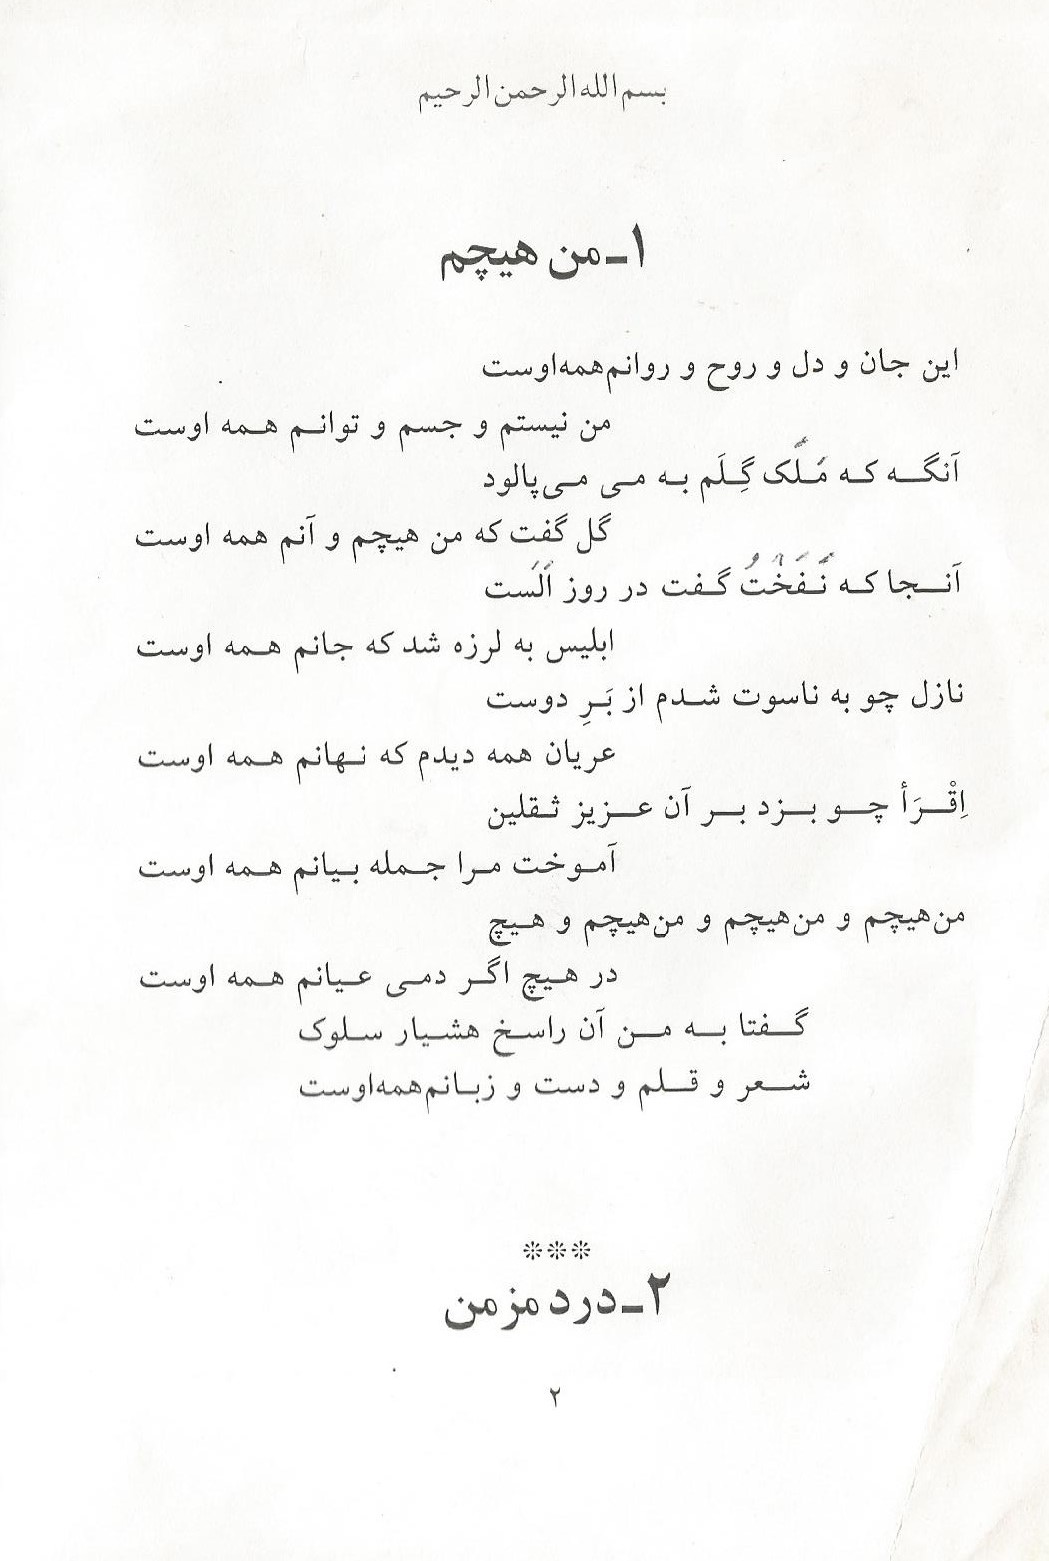 بسم الله الرحمن الرحیم
۱ـ من هیچم
این جان و دل و روح و روانم همه اوست
من نیستم و جسم و توانم همه اوست
آنگه که مُلَک گِلَم به می می‌پالود
گل گفت که من هیچم و آنم همه اوست
آنجا که نَفَخْتُ گفت در روز اَلَست
ابلیس به لرزه شد که جانم همه اوست
نازل چو به ناسوت شدم از بَرِ دوست
عریان همه دیدم که نهانم همه اوست
اِقْرَأ چو بزد بر آن عزیز ثقلین
آموخت مرا جمله بیانم همه اوست
من هیچم و من هیچم و من هیچم و هیچ
در هیچ اگر دمی عیانم همه اوست
گفتا به من آن راسخ هشیار سلوک
شعر و قلم و دست و زبانم همه اوست
***
۲ـ درد مزمن
۲